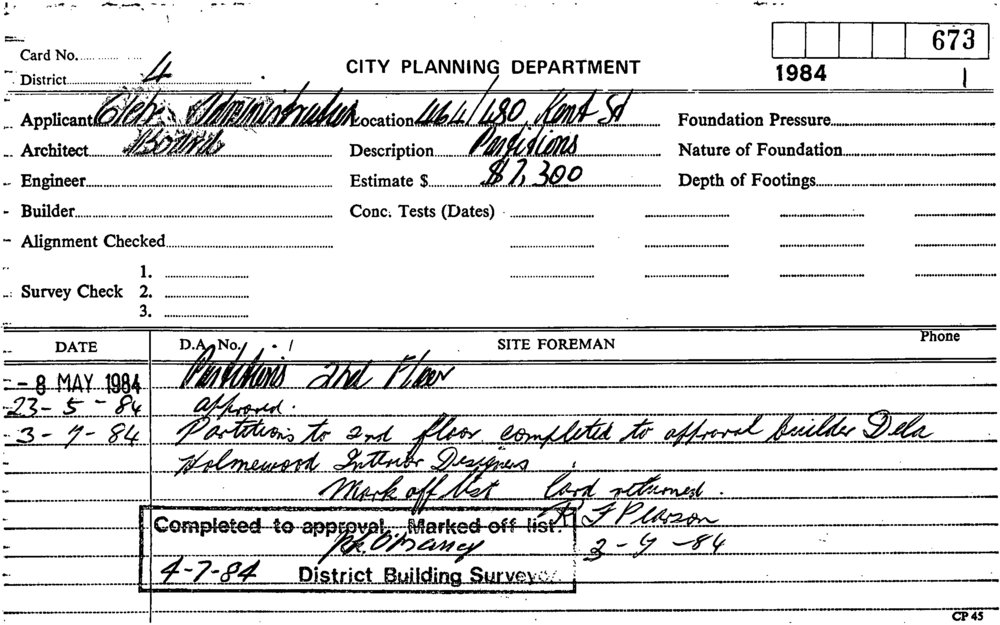 673
Card No.
CITY PLANNING DEPARTMENT
1984 1
District 4
Applicant Glebe Administration Location 464/480 Kent St Foundation Pressure
Architect Board Description Partitions Nature of Foundation
Engineer Estimate $ $7,300 Depth of Footings
Builder Conc. Tests (Dates)
Alignment Checked
1.
Survey Check 2.
3.
DATE D.A. No. / SITE FOREMAN Phone
- 8 MAY 1984 Partitions 2nd Floor
23-5-84 approved.
3-7-84 Partitions to 2nd floor completed to approval builder Dela
Holmewood Interior Designers
Mark off list Card returned.
Completed to approval. Marked off list. R F Pearson
3-7-84
4-7-84 District Building Surveyor
CP 45